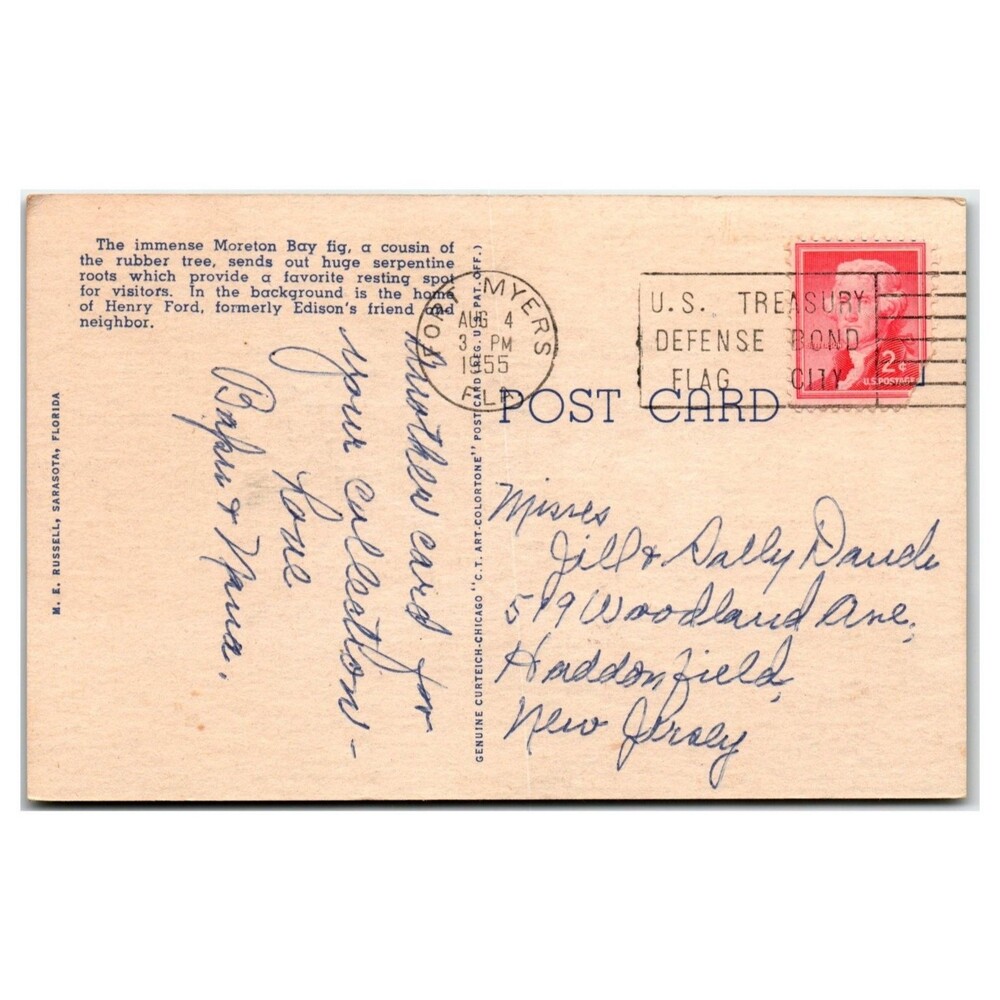 The immense Moreton Bay fig, a cousin of
the rubber tree, sends out huge serpentine
roots which provide a favorite resting spot
for visitors. In the background is the home
of Henry Ford, formerly Edison's friend and
neighbor.
Another card for
your collection-
Love
& Nana.
M. E. RUSSELL, SARASOTA, FLORIDA
GENUINE CURTEICH-CHICAGO "C.T. ART-COLORTONE" POST CARD (REG. U.S. PAT. OFF.)
FORT MYERS
AUG 4
3 PM
1955
FLA
U.S. TREASURY
DEFENSE BOND
FLAG CITY
2¢
U.S. POSTAGE
POST CARD
Misses
Jill & Sally
519 Woodland Ave,
Haddonfield,
New Jersey